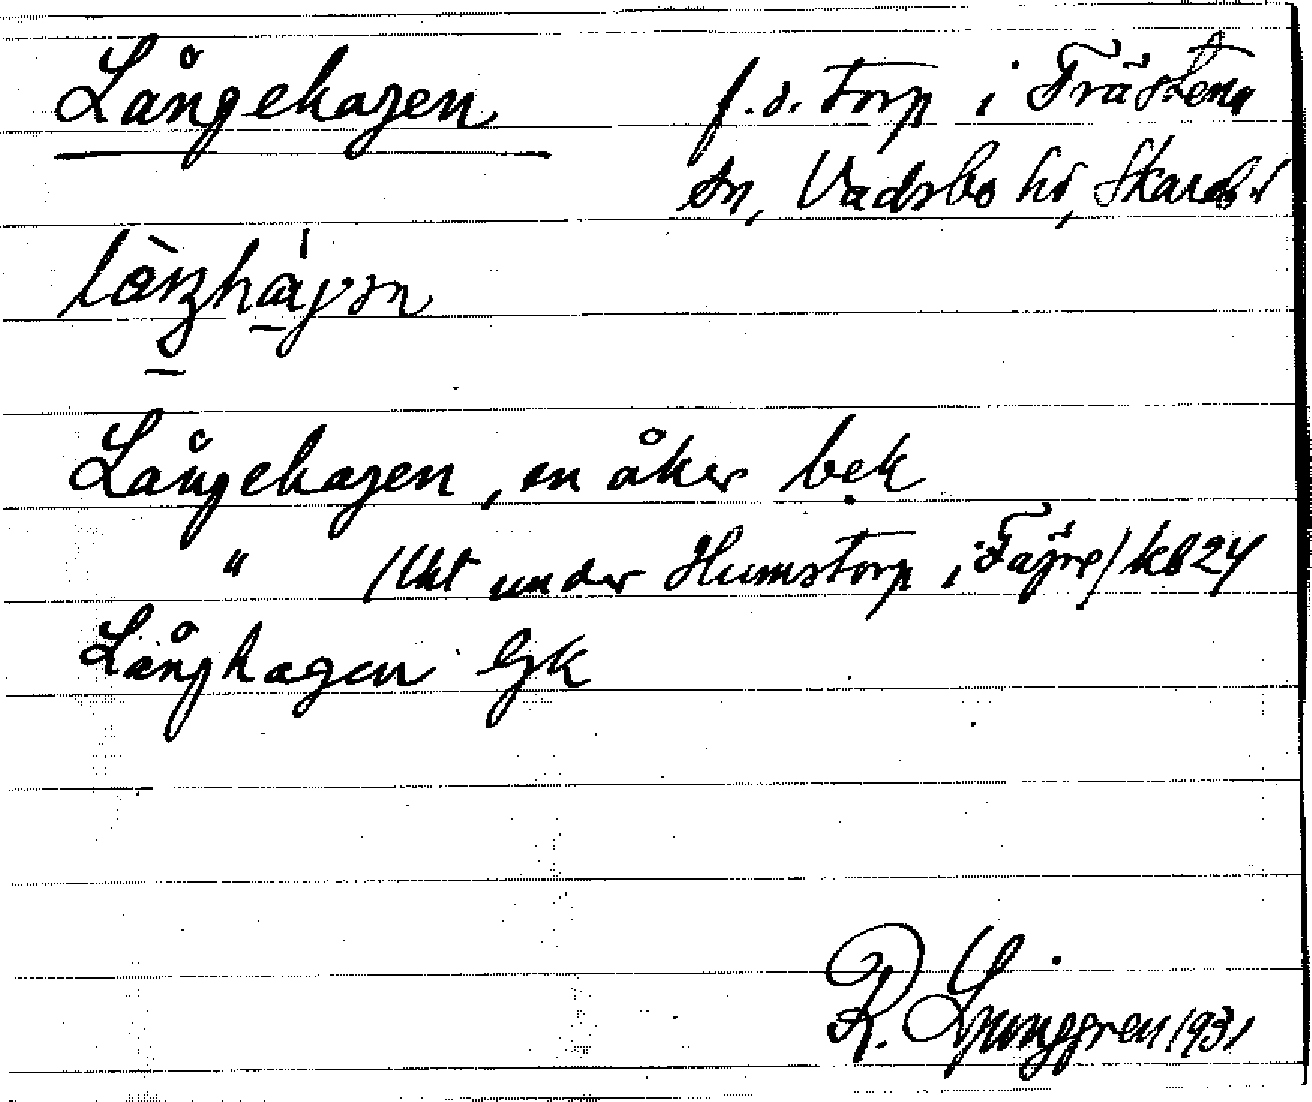 Långehagen f.d. torp i Trästena
sn, Vadsbo hd, Skarab. l
Långehagen, en åker bek
" /Utt under Humstorp i Fägre/ kb 24
Långhagen Gk
R. Ljunggren 1931